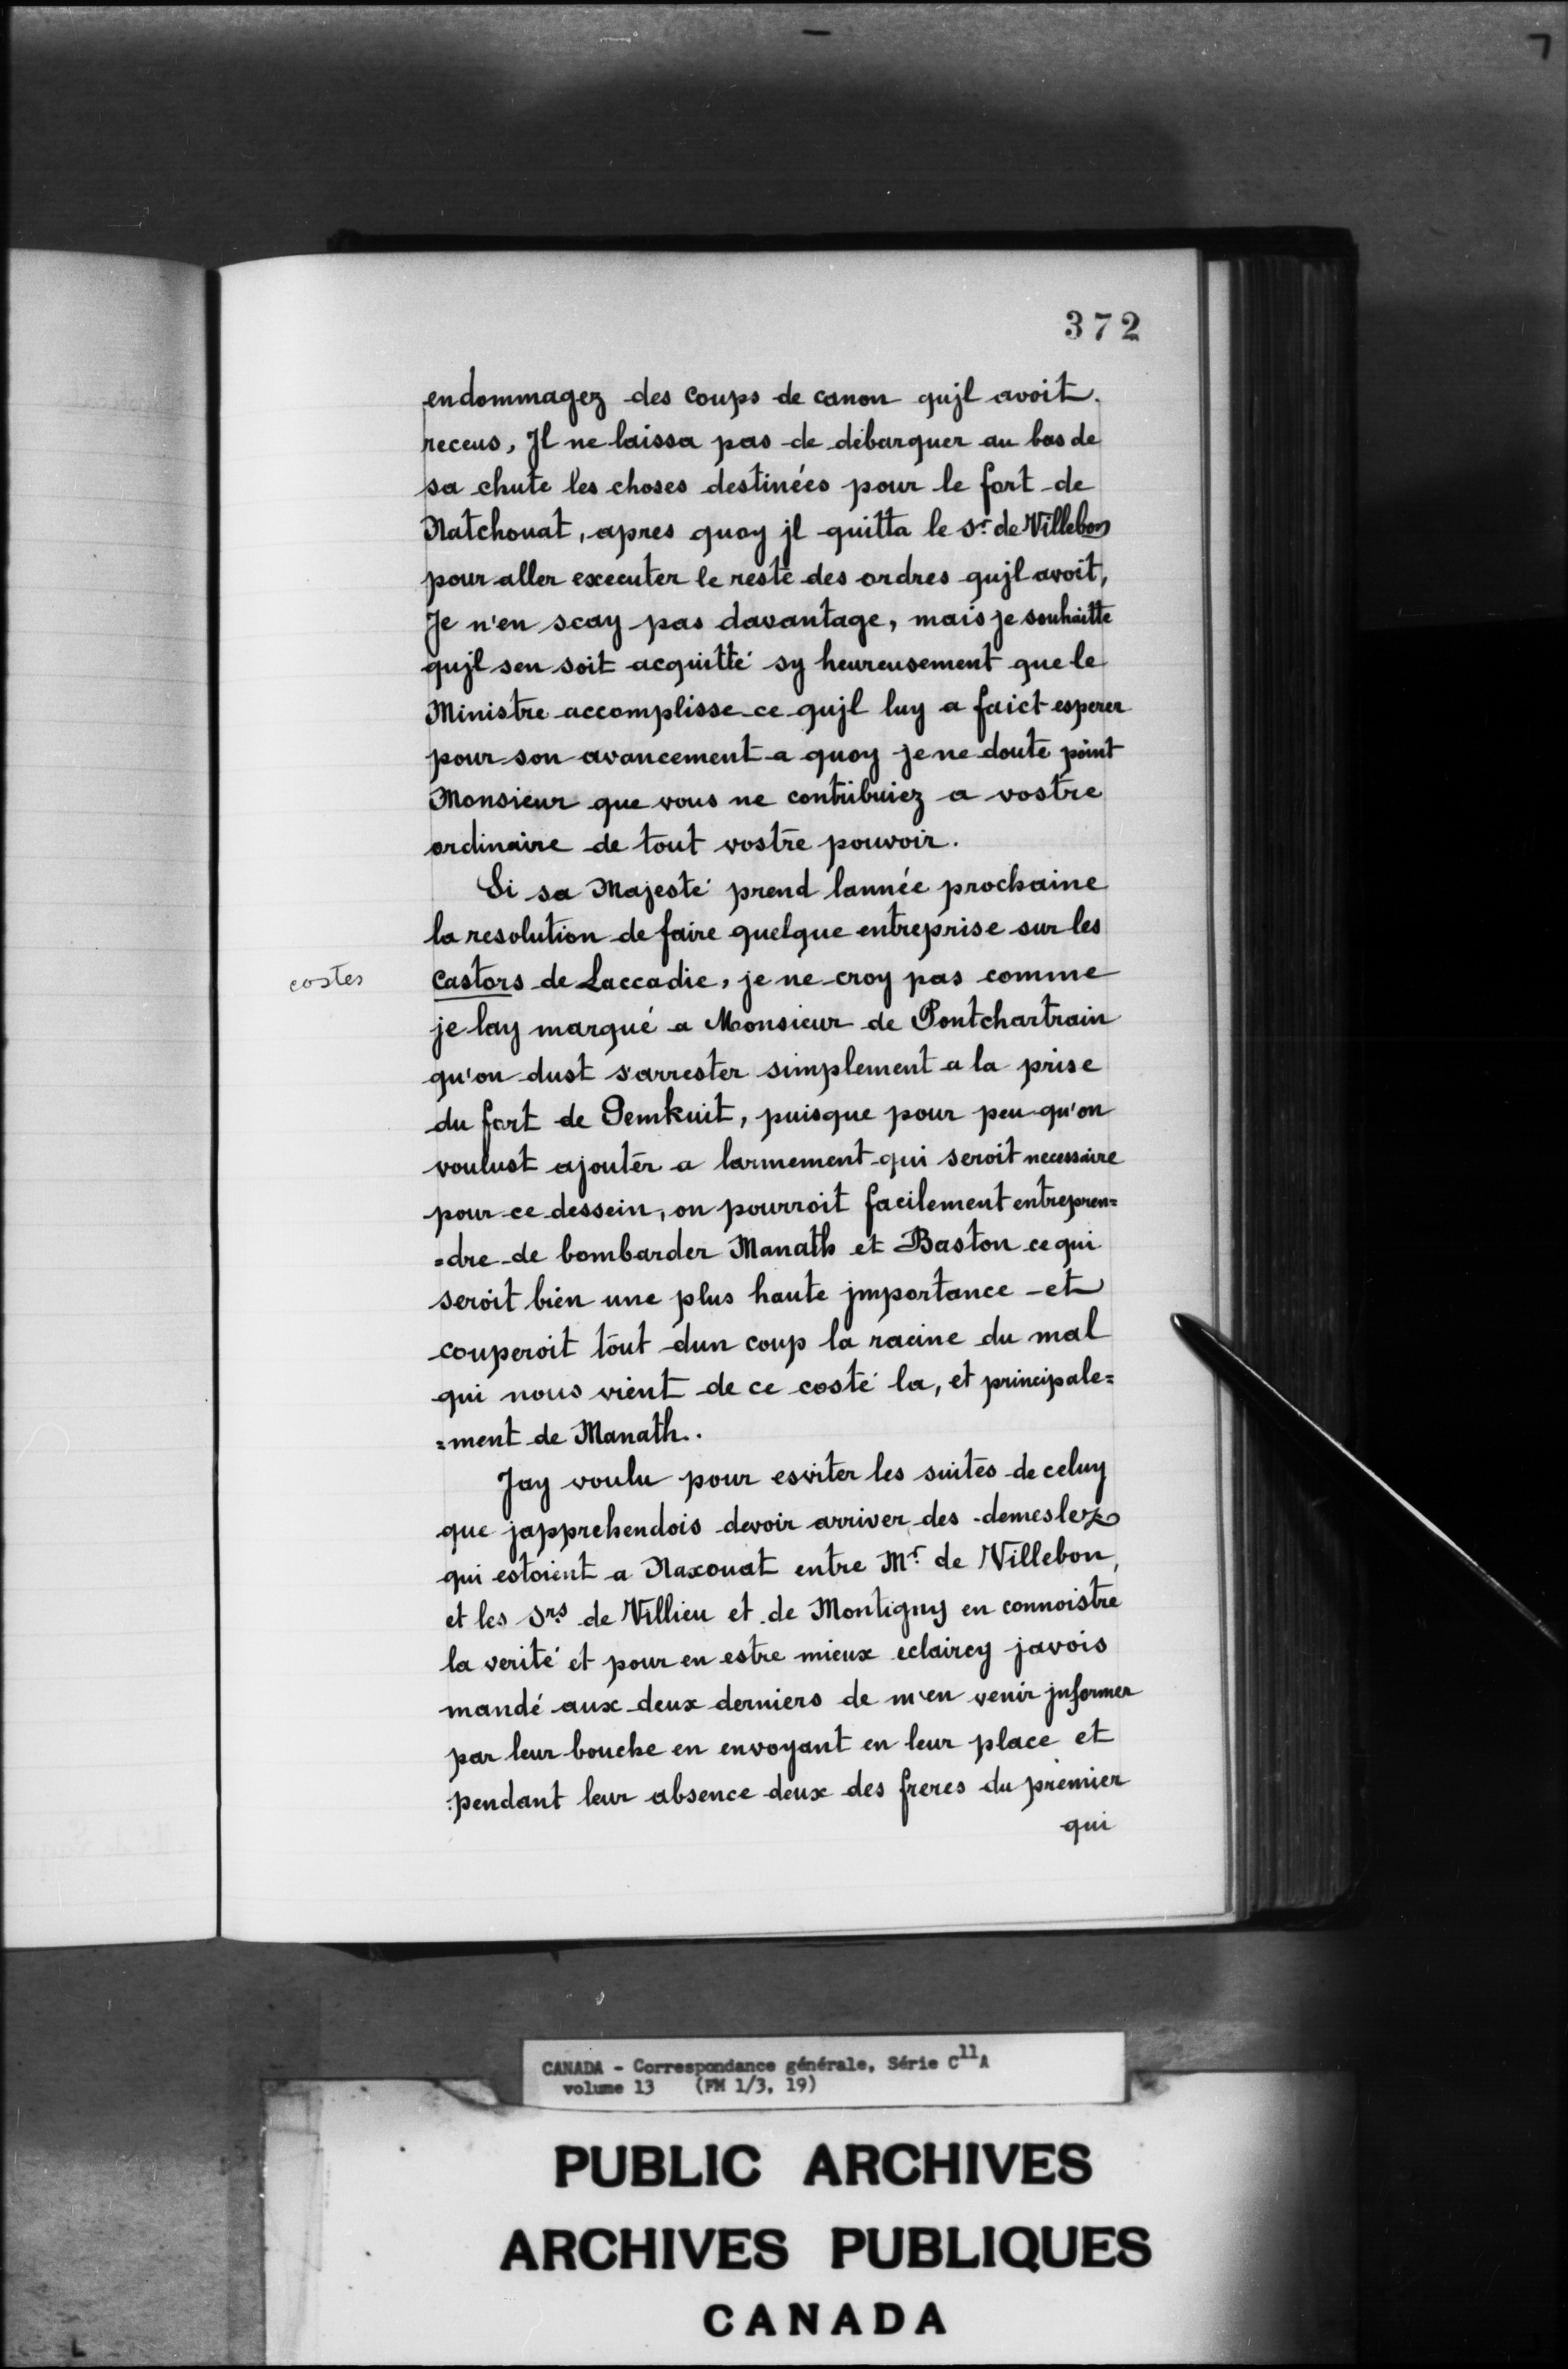 372
endommagez des coups de canon qujl avoit
receus, Jl ne laissa pas de débarquer au bas de
sa chute les choses destinées pour le fort de
Natchouat, apres quoy jl quitta le Sr. de Villebon
pour aller executer le reste des ordres qujl avoit,
Je n'en scay pas davantage, mais je souhaitte
qujl sen soit acquitté sy heureusement que le
Ministre accomplisse ce qujl luy a faict esperer
pour son avancement a quoy je ne doute point
Monsieur que vous ne contribuiez a vostre
ordinaire de tout vostre pouvoir.
Si sa Majesté prend lannée prochaine
la resolution de faire quelque entreprise sur les
costes castors de Laccadie, je ne croy pas comme
je lay marqué a Monsieur de Pontchartrain
qu'on dust s'arrester simplement a la prise
du fort de Pemkuit, puisque pour peu qu'on
voulust ajouter a larmement qui seroit necessaire
pour ce dessein, on pourroit facilement entrepren=
=dre de bombarder Manath et Baston ce qui
seroit bien une plus haute jmportance et
couperoit tout dun coup la racine du mal
qui nous vient de ce costé la, et principale=
=ment de Manath.
Jay voulu pour esviter les suites de celuy
que japprehendois devoir arriver des demeslez
qui estoient a Naxouat entre Mr. de Villebon,
et les Srs de Villieu et de Montigny en connoistre
la verité et pour en estre mieux eclaircy javois
mandé aux deux derniers de m'en venir jnformer
par leur bouche en envoyant en leur place et
pendant leur absence deux des freres du premier
qui
CANADA - Correspondance générale, Série C11A
volume 13 (FM 1/3, 19)
PUBLIC ARCHIVES
ARCHIVES PUBLIQUES
CANADA